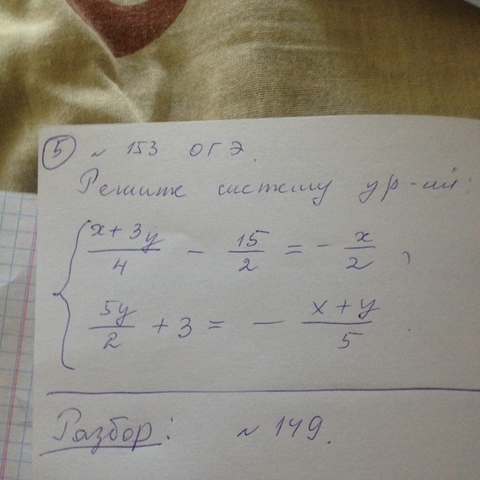 5 № 153 ОГЭ.
Решите систему ур-ий:
{ (x + 3y)/4 - 15/2 = - x/2 ,
5y/2 + 3 = - (x + y)/5 .
Разбор: № 149.